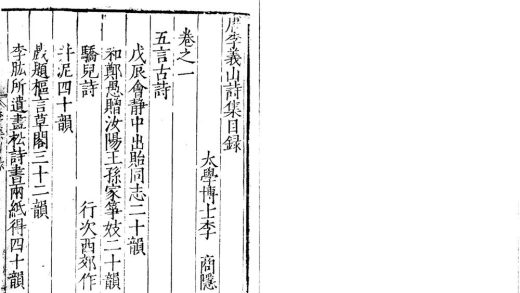 唐李義山詩集目録
太學博士李 商隱
卷之一
五言古詩
戊辰會静中出貽同志二十韻
和鄭愚贈汝陽王孫家箏妓二十韻
驕兒詩 行次西郊作
井泥四十韻
戲題樞言草閣三十二韻
李肱所遺畫松詩書兩紙得四十韻